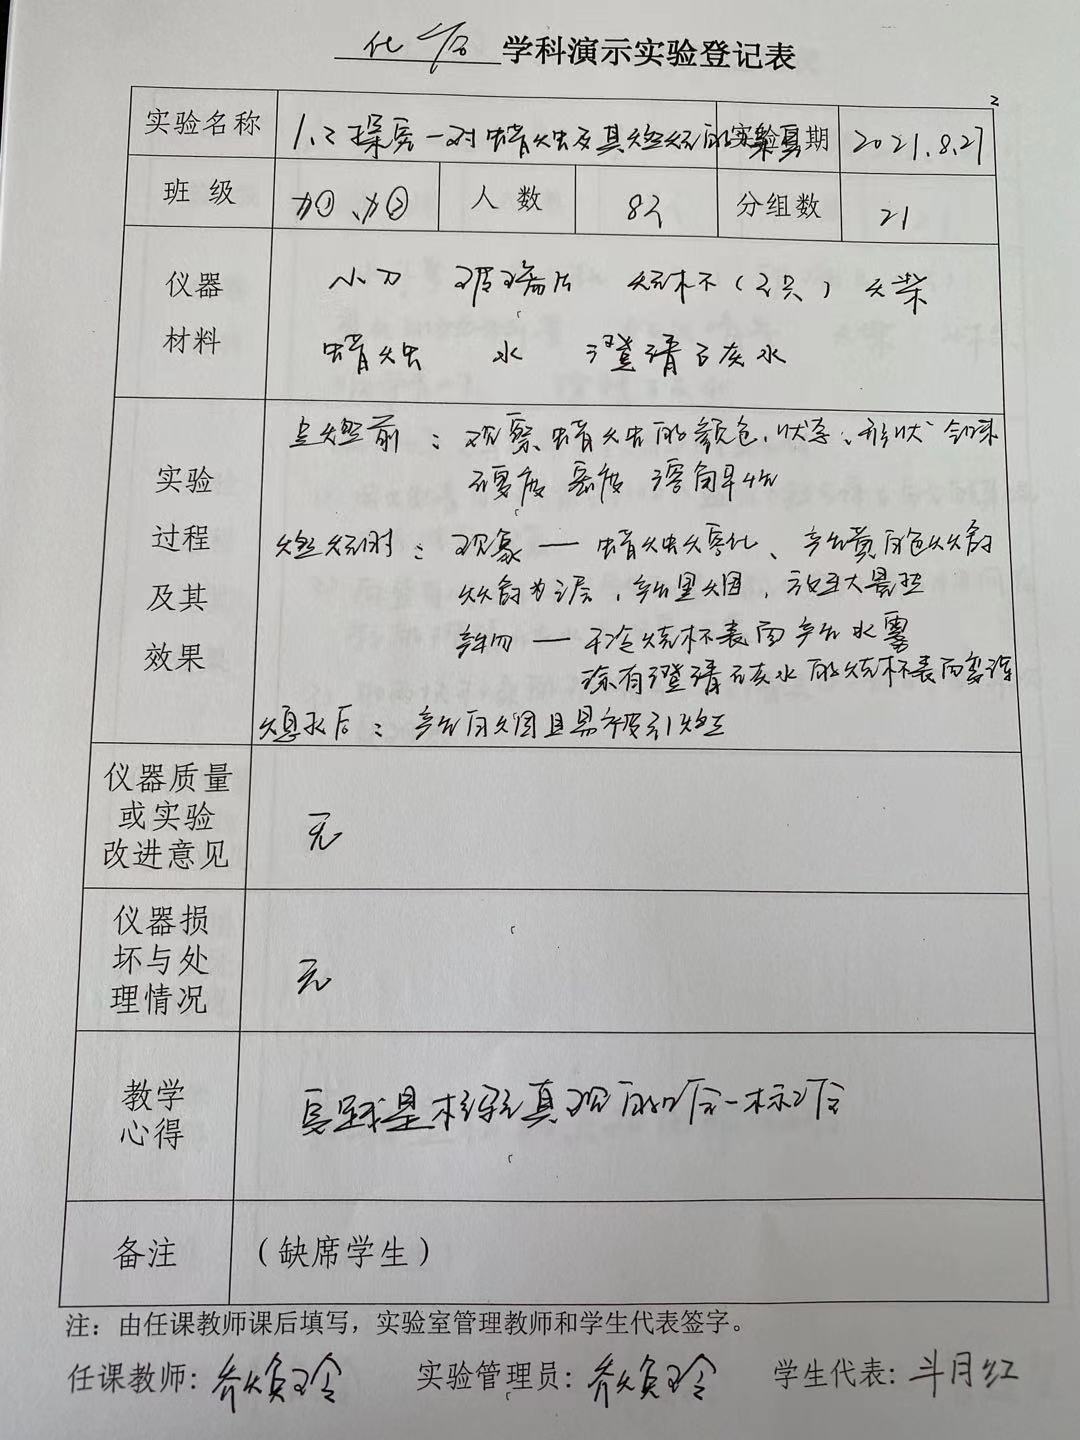 化学 学科演示实验登记表
2
实验名称 1.2探究一对蜡烛及其燃烧的 实验日期 2021.8.27
班 级 九①、九② 人 数 82 分组数 21
仪器 小刀 玻璃片 烧杯(2只) 火柴
材料 蜡烛 水 澄清石灰水
点燃前: 观察蜡烛的颜色、状态、形状
实验 硬度 密度 溶解性
过程 燃烧时: 现象 — 蜡烛熔化、产生黄白色火焰
及其 火焰分三层,产生黑烟,放热
效果 产物 — 干冷烧杯表面产生水雾
涂有澄清石灰水的烧杯表面变浑
熄灭后: 产生白烟且易被引燃
仪器质量
或实验 无
改进意见
仪器损
坏与处 无
理情况
教学 实践是检验真理的唯一标准
心得
备注 (缺席学生)
注:由任课教师课后填写,实验室管理教师和学生代表签字。
任课教师: 实验管理员: 学生代表: 斗月红